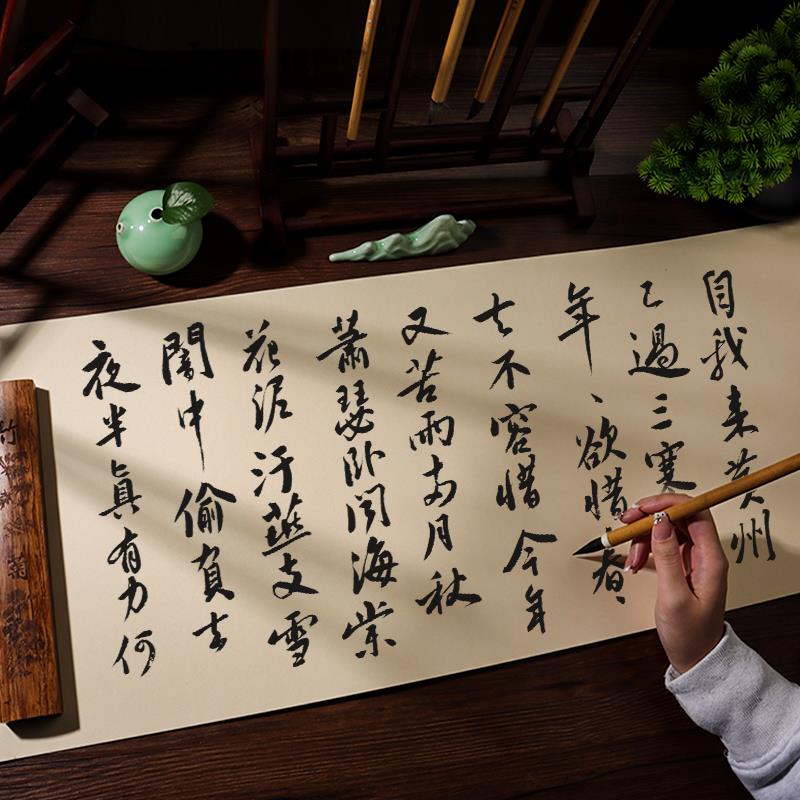 自我来黄州
已過三寒
年、欲惜春、
去不容惜今年
又苦雨兩月秋
蕭瑟卧聞海棠
花泥汙燕支雪
闇中偷負去
夜半真有力何
竹
菊